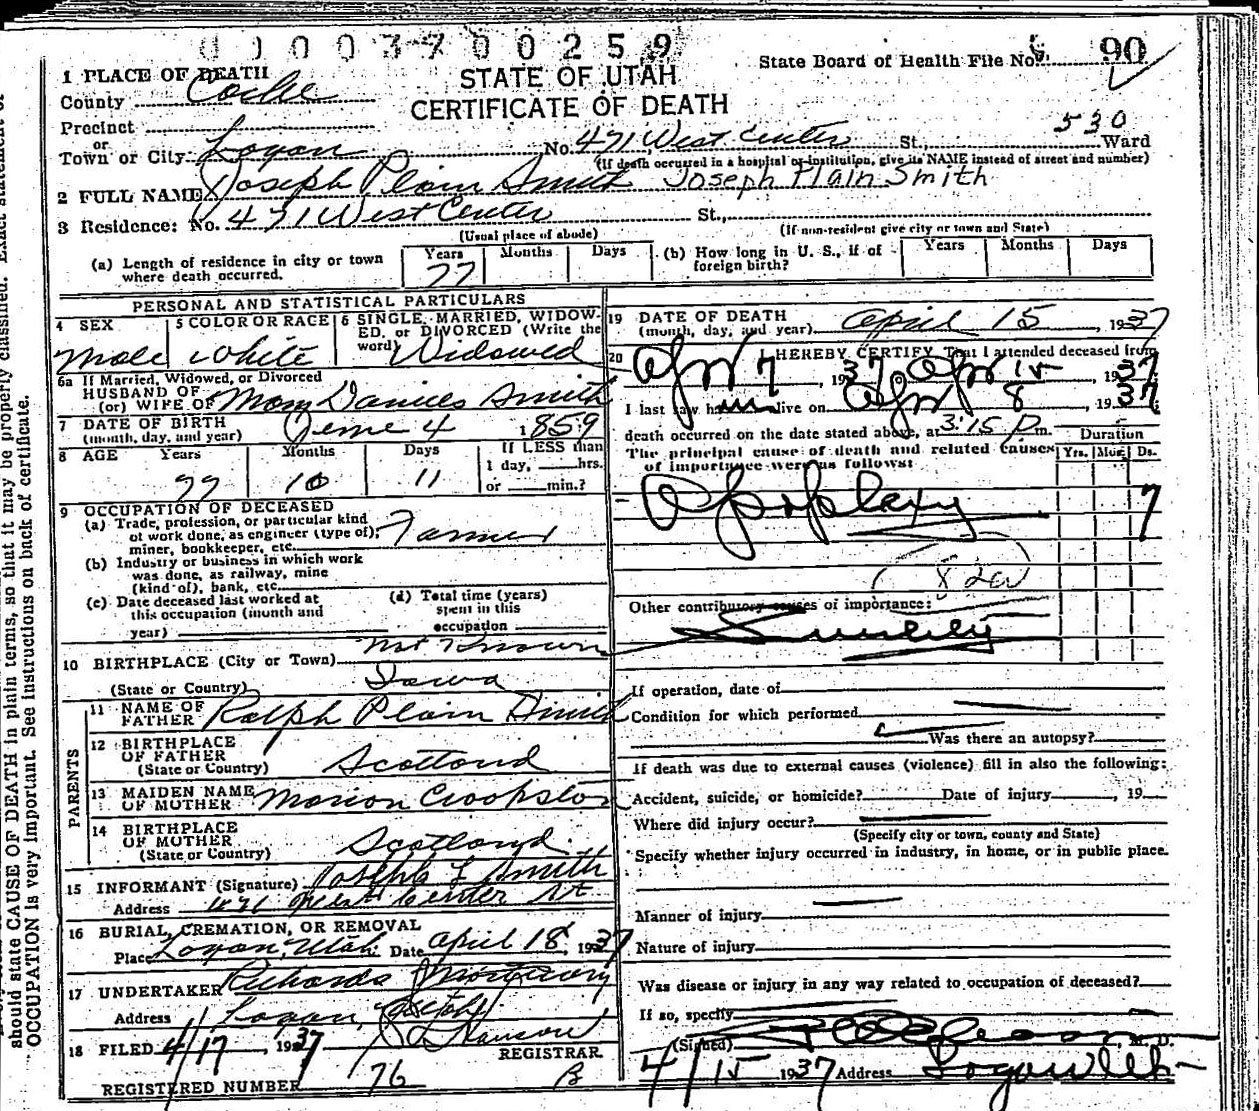 00003700259
State Board of Health File No. 90
1 PLACE OF DEATH
STATE OF UTAH
County Cache
CERTIFICATE OF DEATH
Precinct
or
Town or City Logan No. 471 West Center St., 530 Ward
(If death occurred in a hospital or institution, give its NAME instead of street and number)
2 FULL NAME Joseph Plain Smith Joseph Plain Smith
3 Residence: No. 471 West Center St.,
(Usual place of abode) (If non-resident give city or town and State)
(a) Length of residence in city or town where death occurred. Years 77 Months Days
(b) How long in U. S., if of foreign birth? Years Months Days
PERSONAL AND STATISTICAL PARTICULARS
4 SEX Male
5 COLOR OR RACE White
6 SINGLE, MARRIED, WIDOWED, or DIVORCED (Write the word) Widowed
6a If Married, Widowed, or Divorced
HUSBAND OF
(or) WIFE OF Daniels Smith
7 DATE OF BIRTH
(month, day, and year) June 4 1859
8 AGE Years 77 Months 10 Days 11
If LESS than
1 day, hrs.
or min.?
9 OCCUPATION OF DECEASED
(a) Trade, profession, or particular kind
of work done, as engineer (type of),
miner, bookkeeper, etc. Farmer
(b) Industry or business in which work
was done, as railway, mine
(kind of), bank, etc.
(c) Date deceased last worked at
this occupation (month and
year)
(d) Total time (years)
spent in this
occupation
10 BIRTHPLACE (City or Town) not known
(State or Country) Iowa
PARENTS
11 NAME OF
FATHER Ralph Plain Smith
12 BIRTHPLACE
OF FATHER
(State or Country) Scotland
13 MAIDEN NAME
OF MOTHER Marion Crookston
14 BIRTHPLACE
OF MOTHER
(State or Country) Scotland
15 INFORMANT (Signature) Joseph L Smith
Address 471 West Center St
16 BURIAL, CREMATION, OR REMOVAL
Place Logan, Utah. Date April 18, 1937
17 UNDERTAKER Richards Mortuary
Address Logan, Utah
18 FILED 4/17, 1937
REGISTRAR
REGISTERED NUMBER 76
19 DATE OF DEATH
(month, day, and year) April 15, 1937
20 I HEREBY CERTIFY That I attended deceased from
Apr 7, 1937, Apr 15, 1937
I last saw him alive on Apr 8, 1937
death occurred on the date stated above, at 3:15 P m.
Duration
The principal cause of death and related causes
of importance were as follows:
Yrs. Mos. Ds.
Apoplexy 7
82a
Other contributory causes of importance:
Senility
If operation, date of
Condition for which performed
Was there an autopsy?
If death was due to external causes (violence) fill in also the following:
Accident, suicide, or homicide? Date of injury, 19
Where did injury occur?
(Specify city or town, county and State)
Specify whether injury occurred in industry, in home, or in public place.
Manner of injury
Nature of injury
Was disease or injury in any way related to occupation of deceased?
If so, specify
(Signed) M. D.
4/15 1937 Address Logan Utah
should state CAUSE OF DEATH in plain terms, so that it may be properly classified. Exact statement of
OCCUPATION is very important. See instructions on back of certificate.